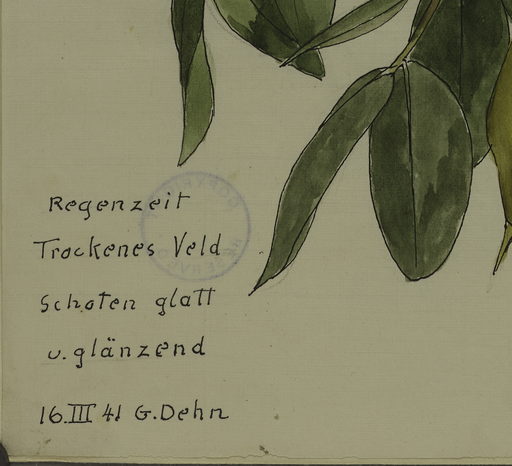 Regenzeit
Trockenes Veld
Schoten glatt
u. glänzend
16.III 41 G. Dehn